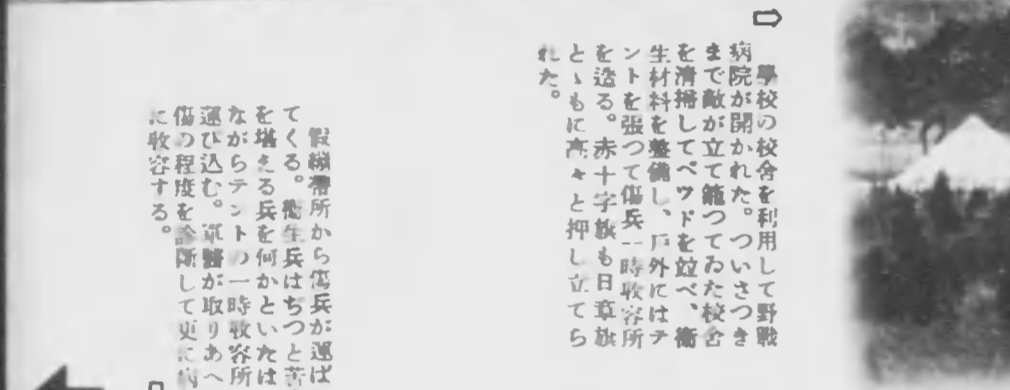 學校の校舍を利用して野戰
病院が開かれた。ついさつき
まで敵が立て籠つてゐた校舍
を淸掃してベツドを竝べ、衞
生材料を整備し、戶外にはテ
ントを張つて傷兵一時收容所
を造る。赤十字旗も日章旗
とゝもに高々と押し立てら
れた。
假繃帶所から傷兵が運ば
てくる。衞生兵はぢつと苦
を堪える兵を何かといたは
ながらテントの一時收容所
運び込む。軍醫が取りあへ
傷の程度を診斷して更に病
に收容する。